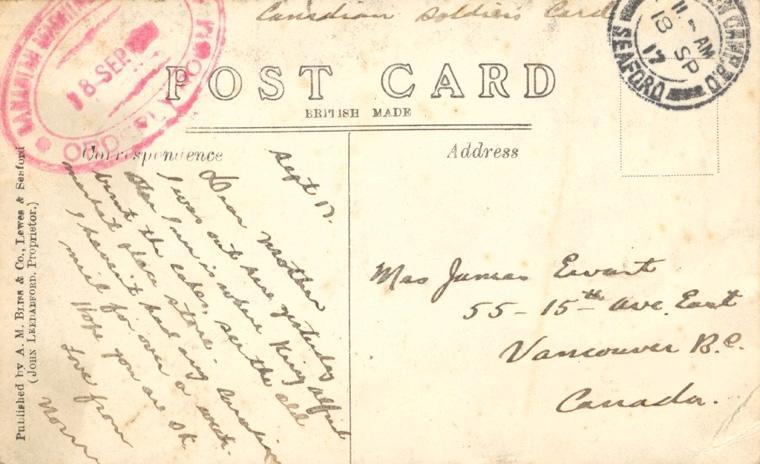 Canadian Soldiers Card
18 SEP
11 AM
18 SP
17
SEAFORD
CAMP B.O
POST CARD
BRITISH MADE
Correspondence
Address
Published by A. M. Bliss & Co., Lewes & Seaford
(John Leedadford, Proprietor.)
Sept 17.
Dear Mother
I was out here yesterday
the Inn is where King Alfred
burnt the cakes, see the old
market place store.
I haven't had any Canadian
mail for over a week.
Hope you are OK
Love from
Norm
Mrs James Ewart
55-15th Ave. East
Vancouver B.C.
Canada.